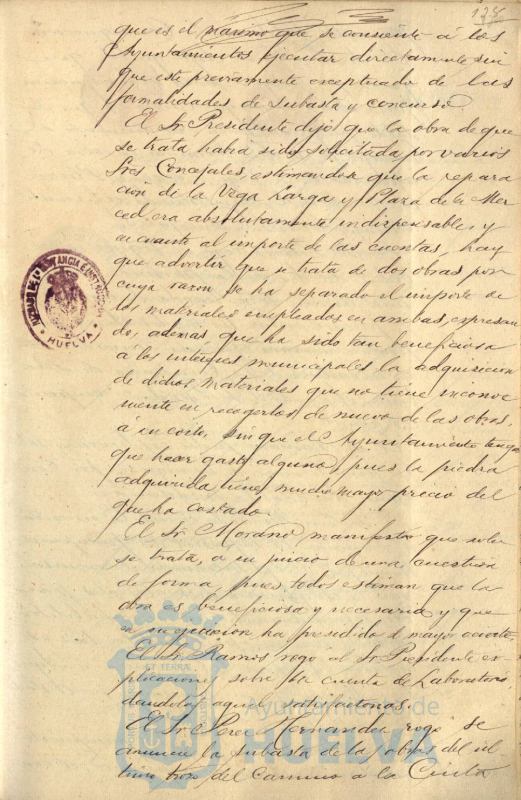 128
que es el maximo que se consiente a los
Ayuntamientos ejecutar directamente sin
que este previamente exceptuado de las
formalidades de subasta y concurso
El Sr. Presidente dijo que la obra de que
se trata habia sido solicitada por varios
Sres Concejales, estimandose que la repara
cion de la Vega Larga y Plaza de la Mer
ced, era absolutamente indispensable, y
en cuanto al importe de las cuentas, hay
que advertir que se trata de dos obras por
cuya razon se ha separado el importe de
los materiales empleados en ambas, expresan
do, además, que ha sido tan beneficiosa
a los intereses municipales la adquisicion
de dichos materiales que no tiene inconve
niente en recogerlos de nuevo de las obras,
a su costo, sin que el Ayuntamiento tenga
que hacer gasto alguno, pues la piedra
adquirida tiene mucho mayor precio del
que ha costado.
El Sr. Morano manifestó que solo
se trata, a su juicio de una cuestion
de forma, pues todos estiman que la
obra es beneficiosa y necesaria y que
en su ejecucion ha presidido el mayor acierto
El Sr. Ramos rogó al Sr. Presidente ex
plicaciones sobre la cuenta de Laboratorio
dandolas aquel satisfactorias.
El Sr. Perez Hernandez rogó se
anuncie la subasta de las obras del ul
timo trozo del Camino a la Cinta
JUZGADO DE 1ª INSTANCIA E INSTRUCCION
• HUELVA •
ET TERRÆ
Ayuntamiento de
HUELVA